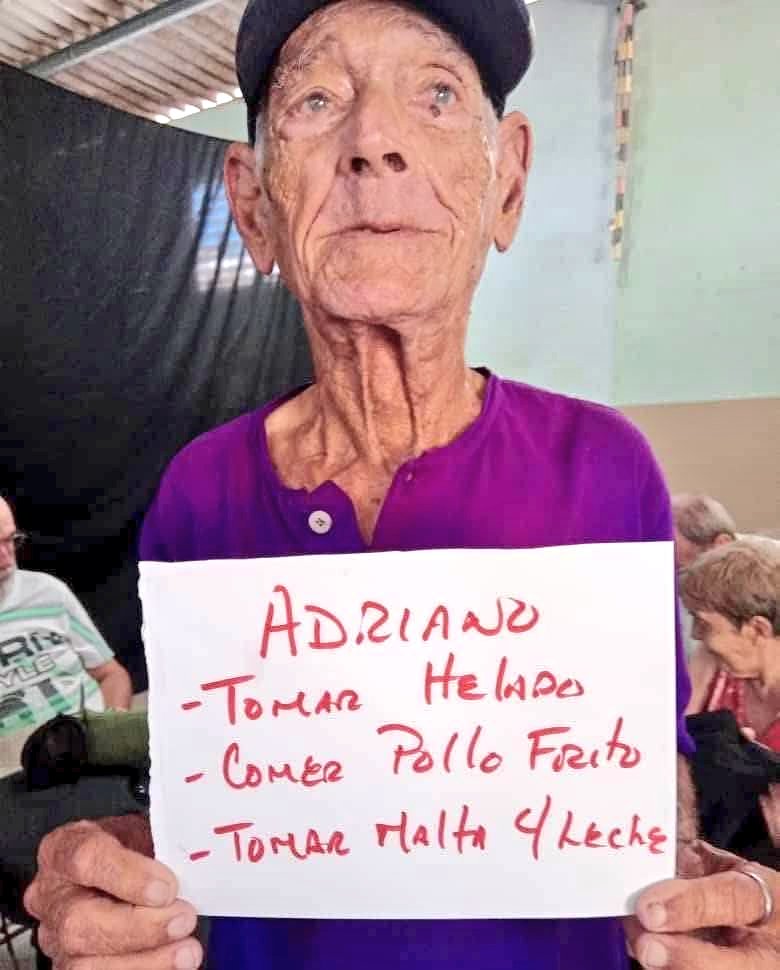 ADRIANO
- TOMAR HELADO
- COMER POLLO FRITO
- TOMAR MALTA C/LECHE